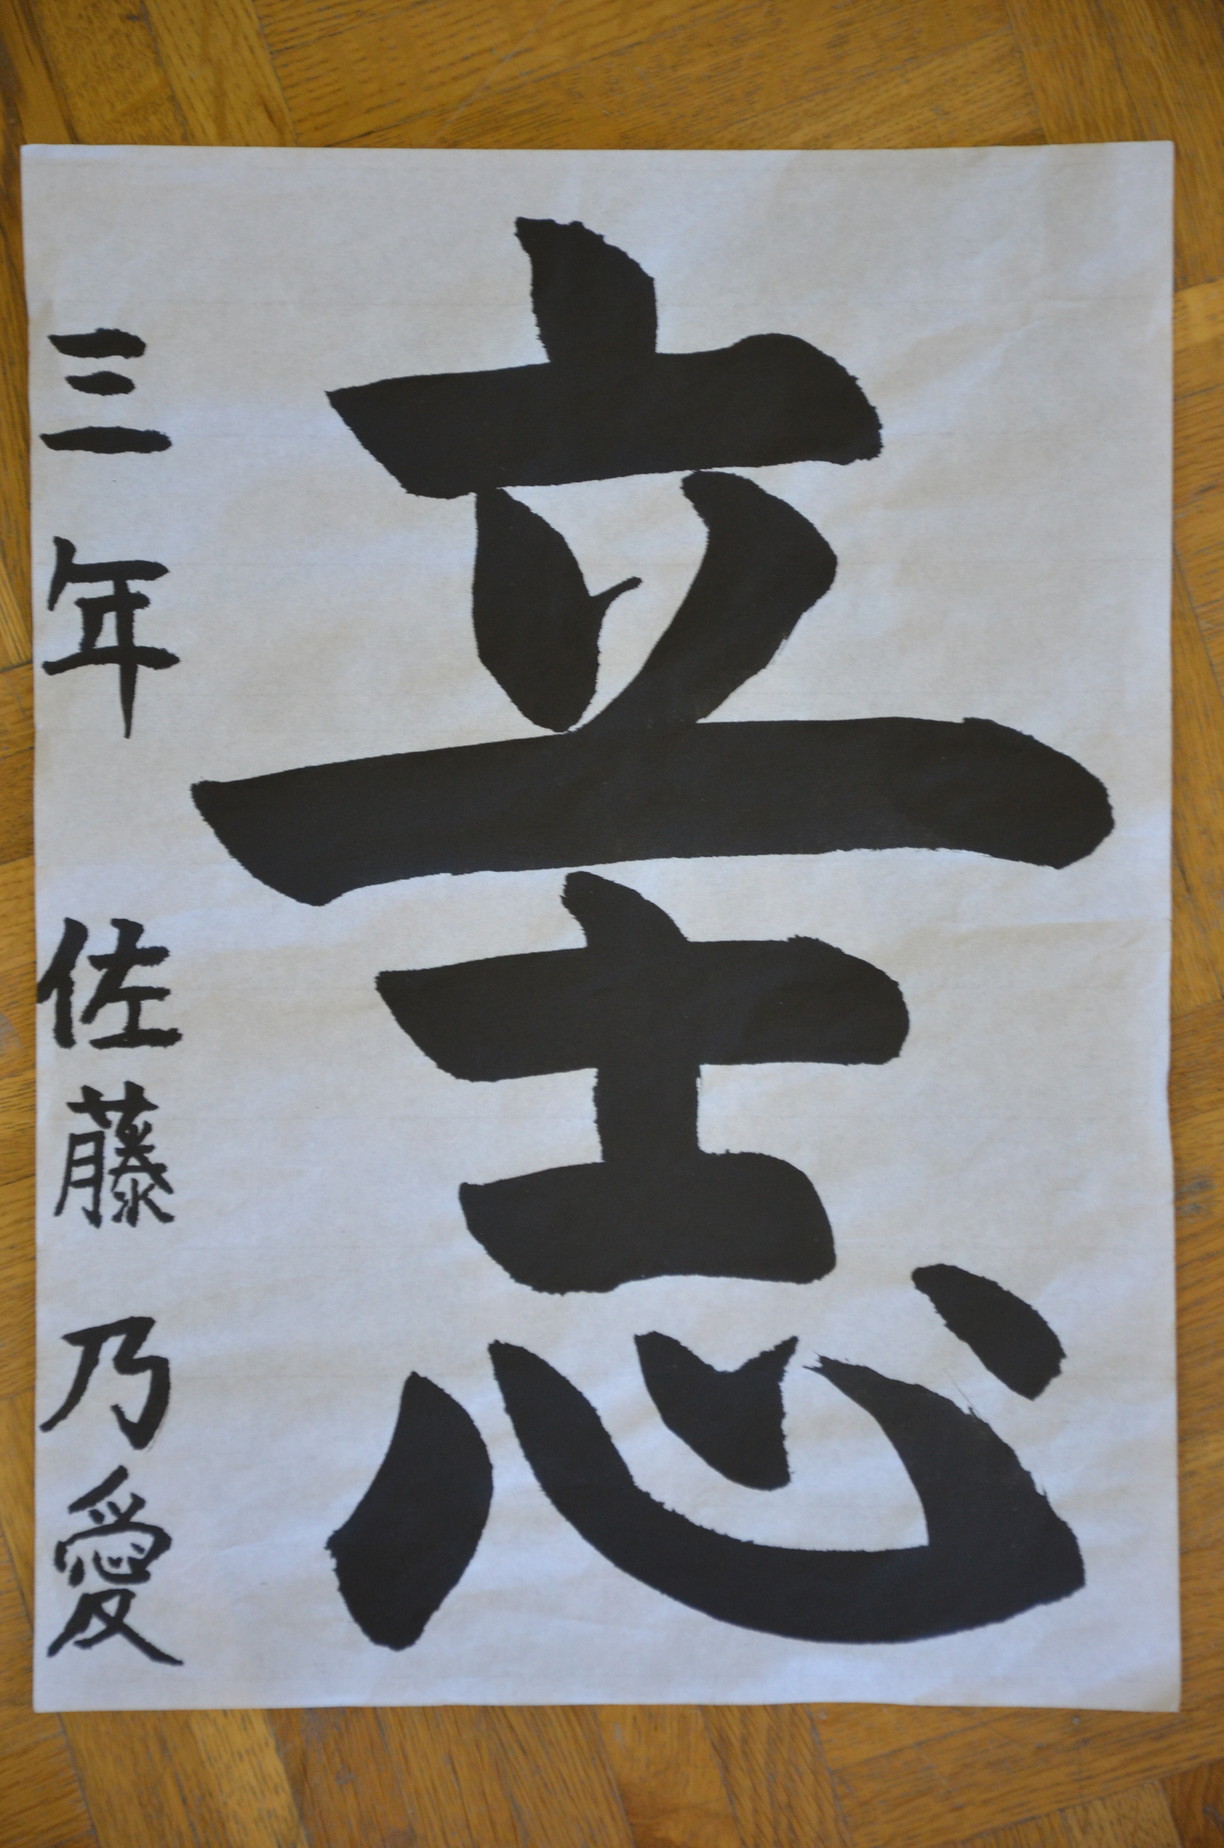 立志
三年 佐藤乃愛